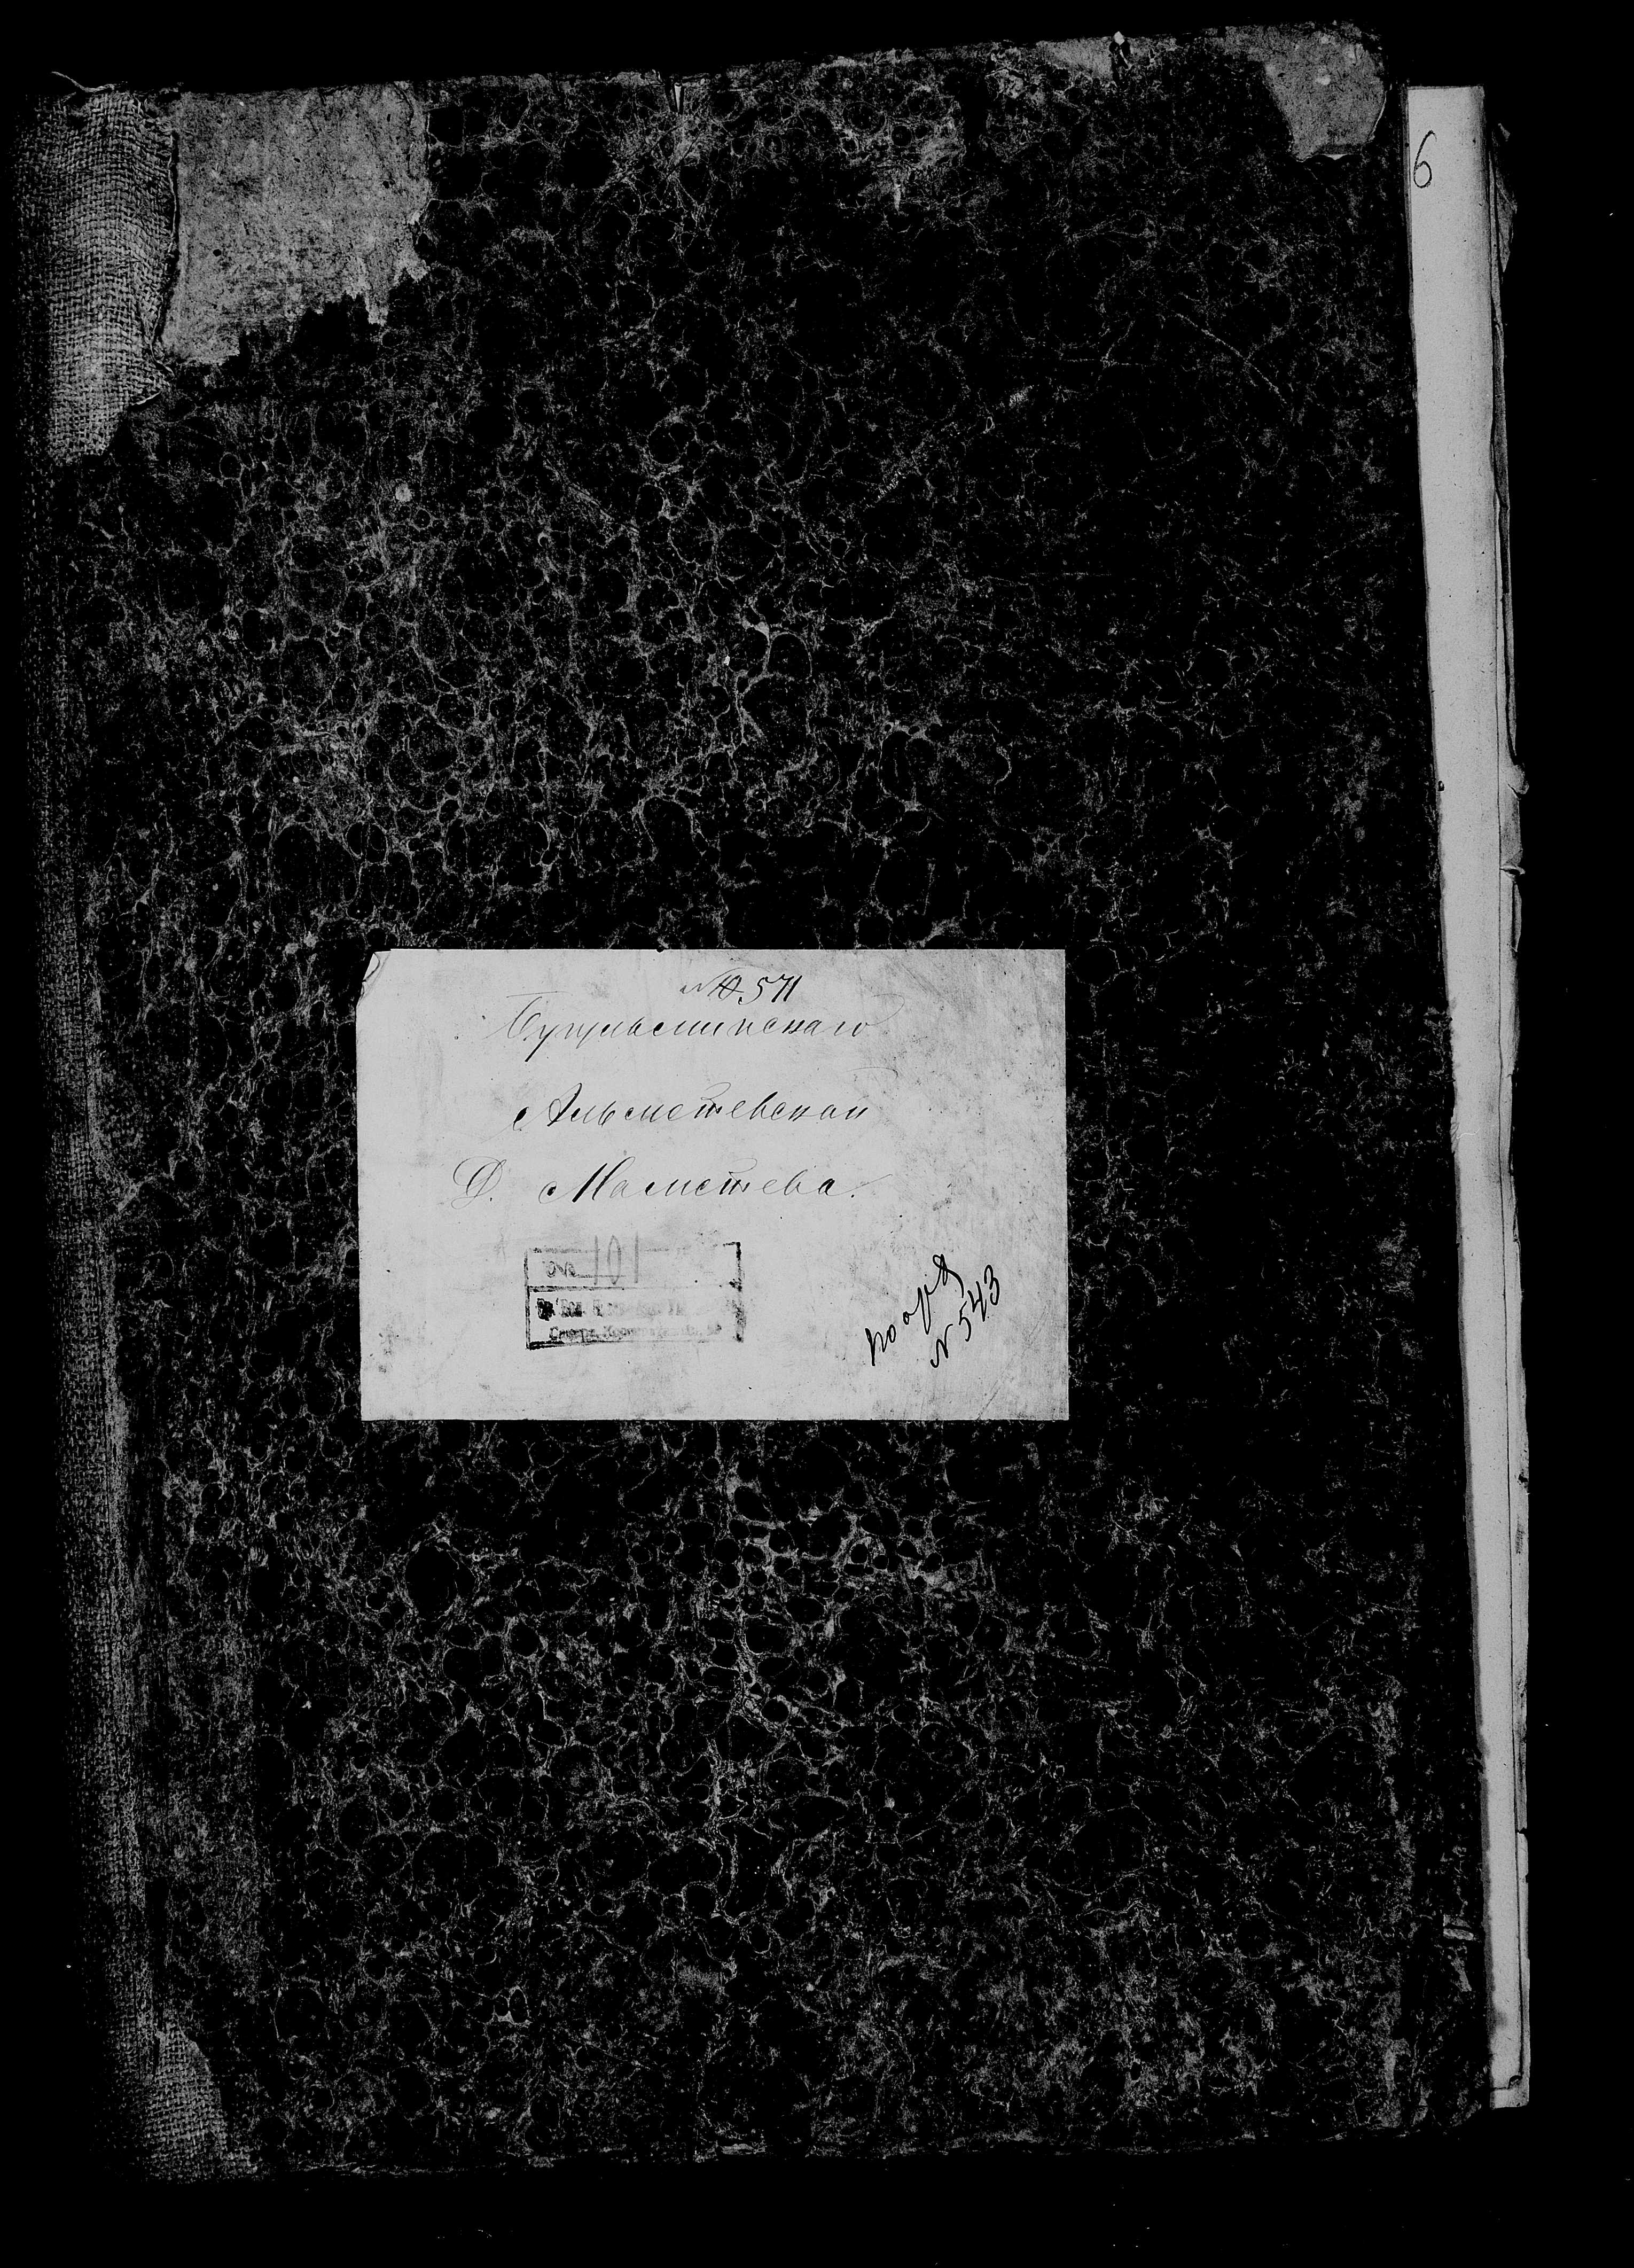 6
№ 571
Бугульминскаго
Альметевская
Д. Маметева.
№ 101
по оpд
N 543